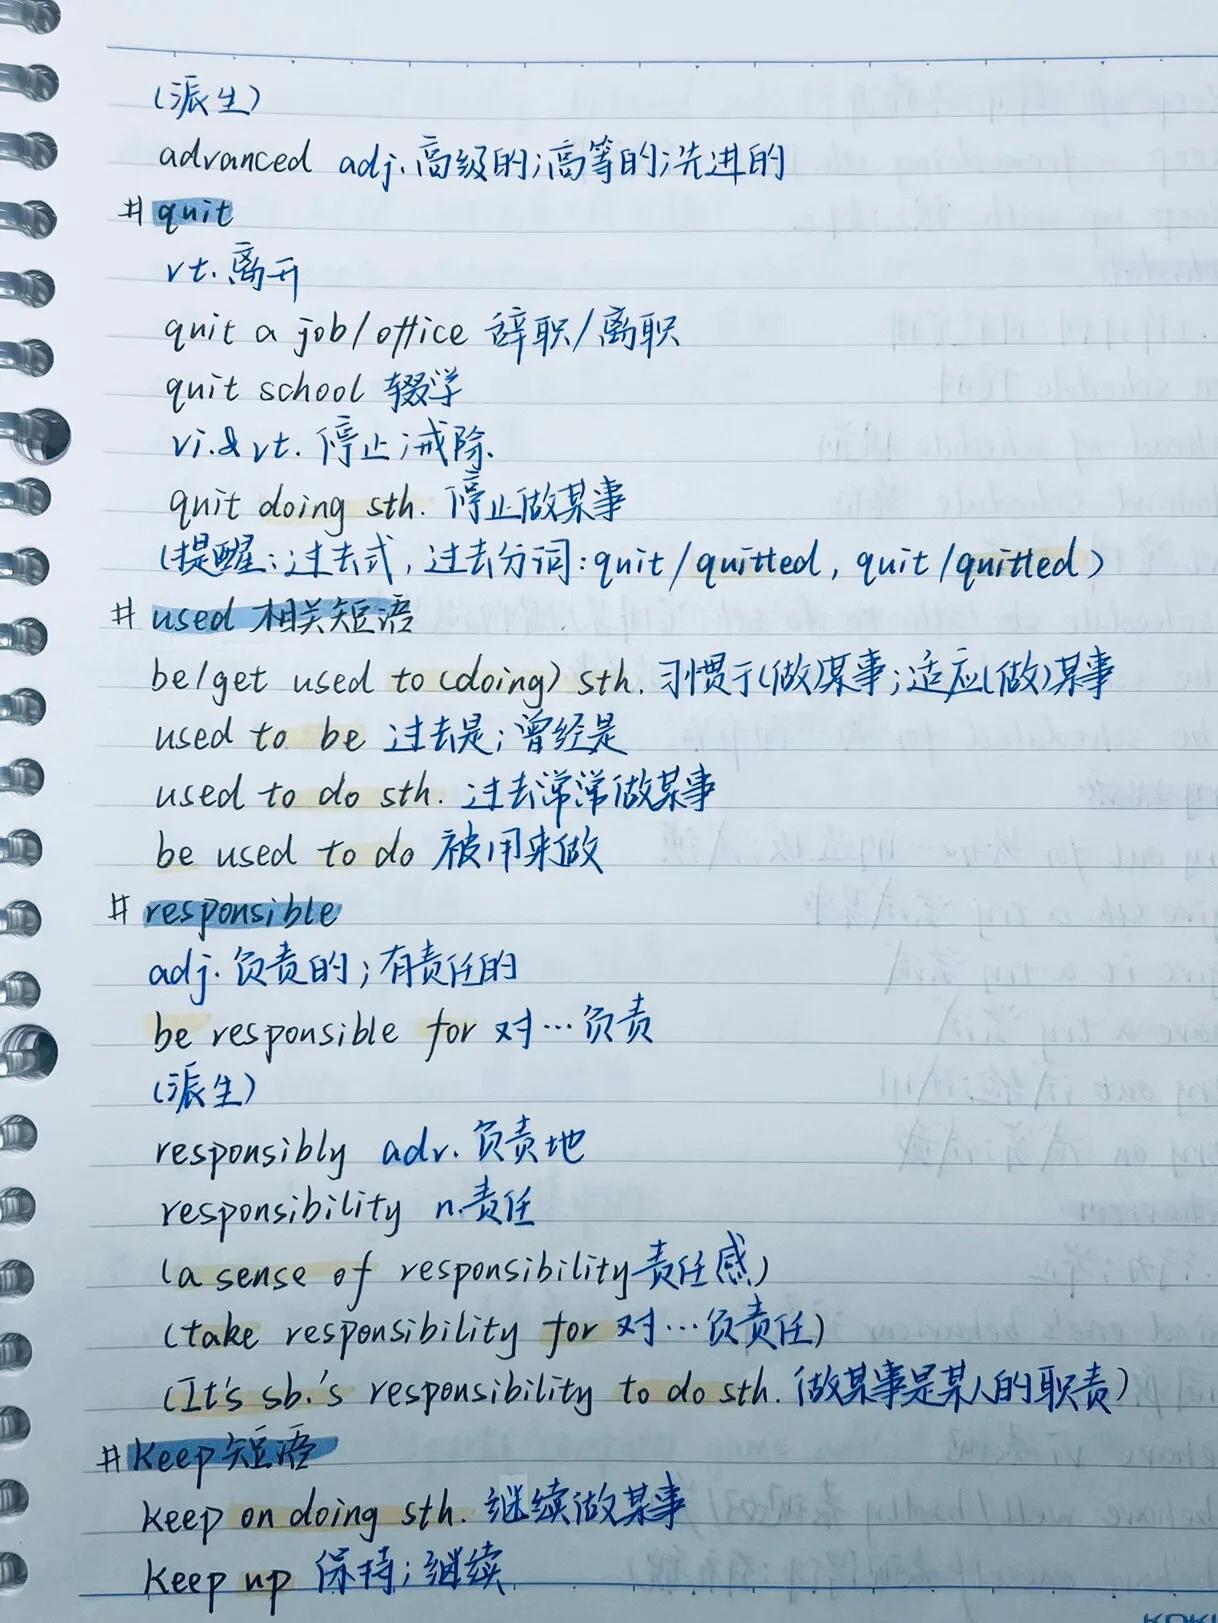 (派生)
advanced adj.高级的;高等的;先进的
# quit
vt.离开
quit a job/office 辞职/离职
quit school 辍学
vi.&vt. 停止;戒除.
quit doing sth. 停止做某事
(提醒:过去式,过去分词:quit/quitted, quit/quitted)
# used 相关短语
be/get used to (doing) sth. 习惯于(做)某事;适应(做)某事
used to be 过去是;曾经是
used to do sth. 过去常常做某事
be used to do 被用来做
# responsible
adj.负责的;有责任的
be responsible for 对…负责
(派生)
responsibly adv.负责地
responsibility n.责任
(a sense of responsibility 责任感)
(take responsibility for 对…负责任)
(It's sb.'s responsibility to do sth. 做某事是某人的职责)
# keep 短语
keep on doing sth. 继续做某事
keep up 保持;继续